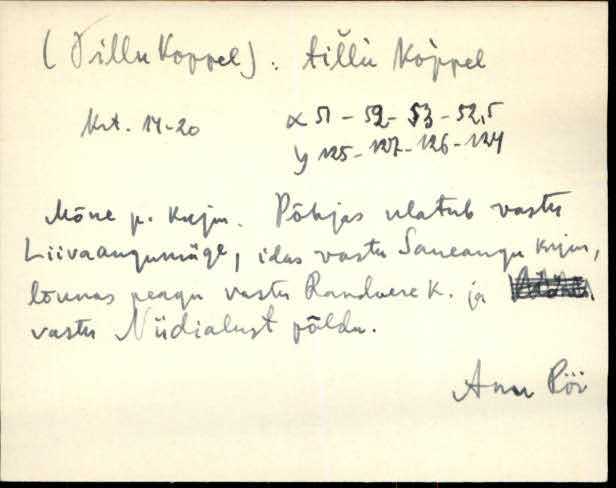 (Tillu Koppel). tiĺ̆lù Kòppel
Krt. 14-20 x 51 - 52 - 53 - 52,5
y 125 - 127 - 126 - 124
Mõne p. kuju. Põhjas ulatub vastu
Liivaaugumäge, idas vastu Saueaugu kuju,
lõunas peagu vastu Randvere k. ja
vastu Niidialust põldu.
Anu